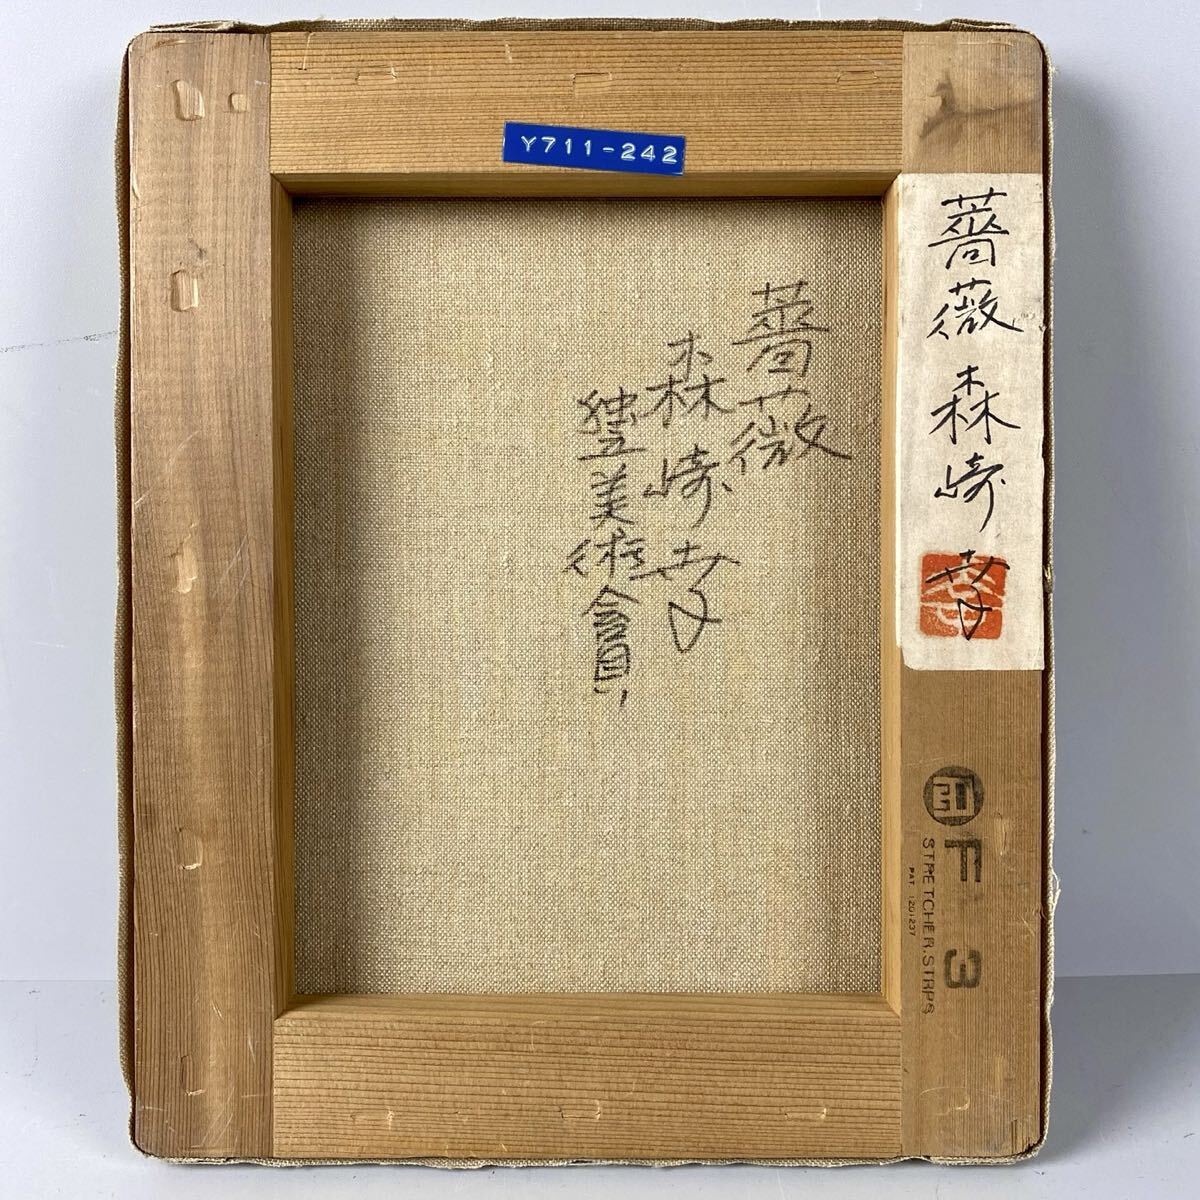 Y711-242
薔薇 森崎 孝
薔薇
森崎孝
独立美術会員
F 3
STRETCHER.STRPS
PAT 1201237